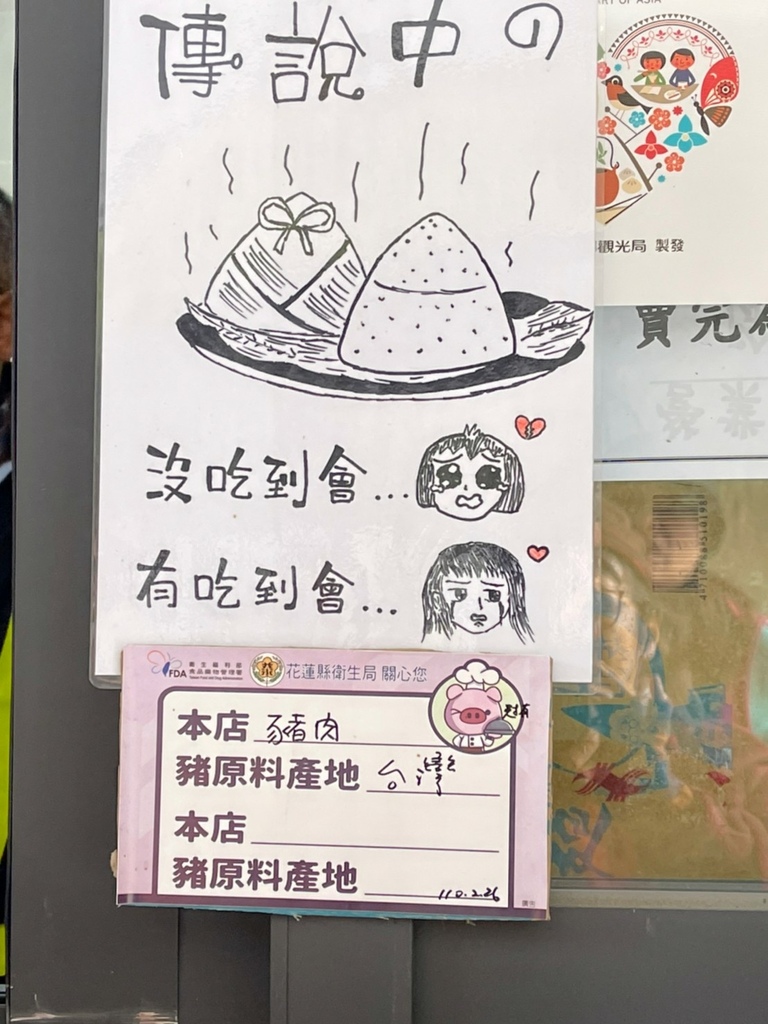 傳說中の
沒吃到會...
有吃到會...
FDA
衛生福利部
食品藥物管理署
花蓮縣衛生局 關心您
本店 豬肉
豬原料產地 台灣
本店
豬原料產地
110.2.26
廣告
觀光局 製發
買完
4710088510198